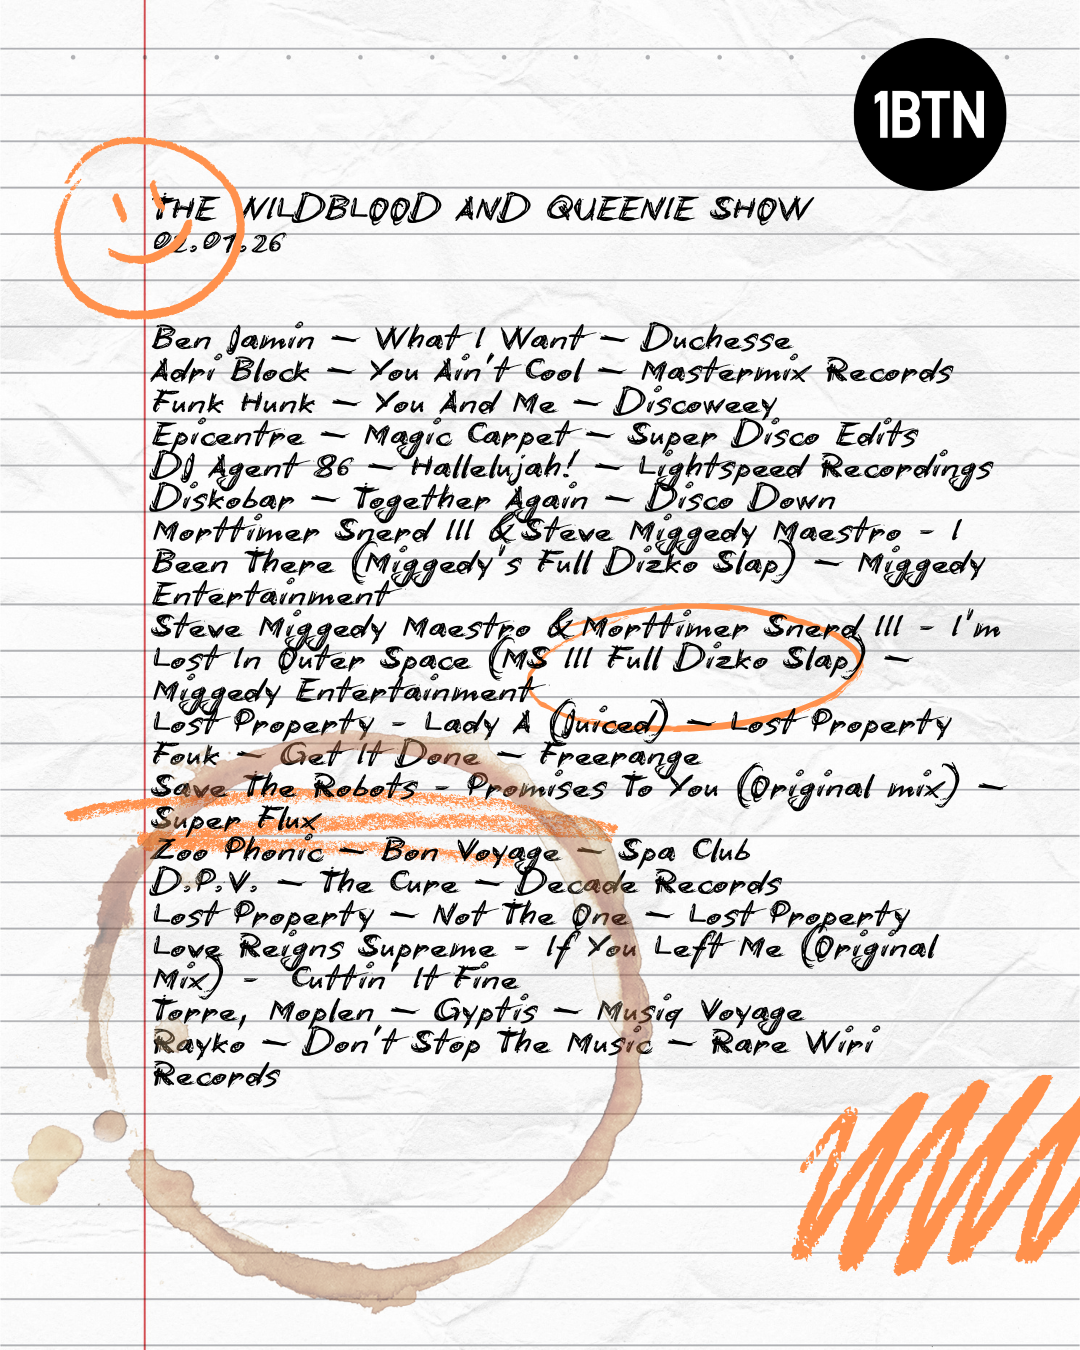 1BTN
THE WILDBLOOD AND QUEENIE SHOW
02.01.26
Ben Jamin – What I Want – Duchesse
Adri Block – You Ain't Cool – Mastermix Records
Funk Hunk – You And Me – Discoweey
Epicentre – Magic Carpet – Super Disco Edits
DJ Agent 86 – Hallelujah! – Lightspeed Recordings
Diskobar – Together Again – Disco Down
Morttimer Snerd III & Steve Miggedy Maestro - I
Been There (Miggedy's Full Dizko Slap) – Miggedy
Entertainment
Steve Miggedy Maestro & Morttimer Snerd III - I'm
Lost In Outer Space (MS III Full Dizko Slap) –
Miggedy Entertainment
Lost Property - Lady A (Juiced) – Lost Property
Fouk – Get It Done – Freerange
Save The Robots - Promises To You (Original mix) –
Super Flux
Zoo Phonic – Bon Voyage – Spa Club
D.P.V. – The Cure – Decade Records
Lost Property – Not The One – Lost Property
Love Reigns Supreme - If You Left Me (Original
Mix) - Cuttin' It Fine
Torre, Moplen – Gyptis – Musiq Voyage
Rayko – Don't Stop The Music – Rare Wiri
Records